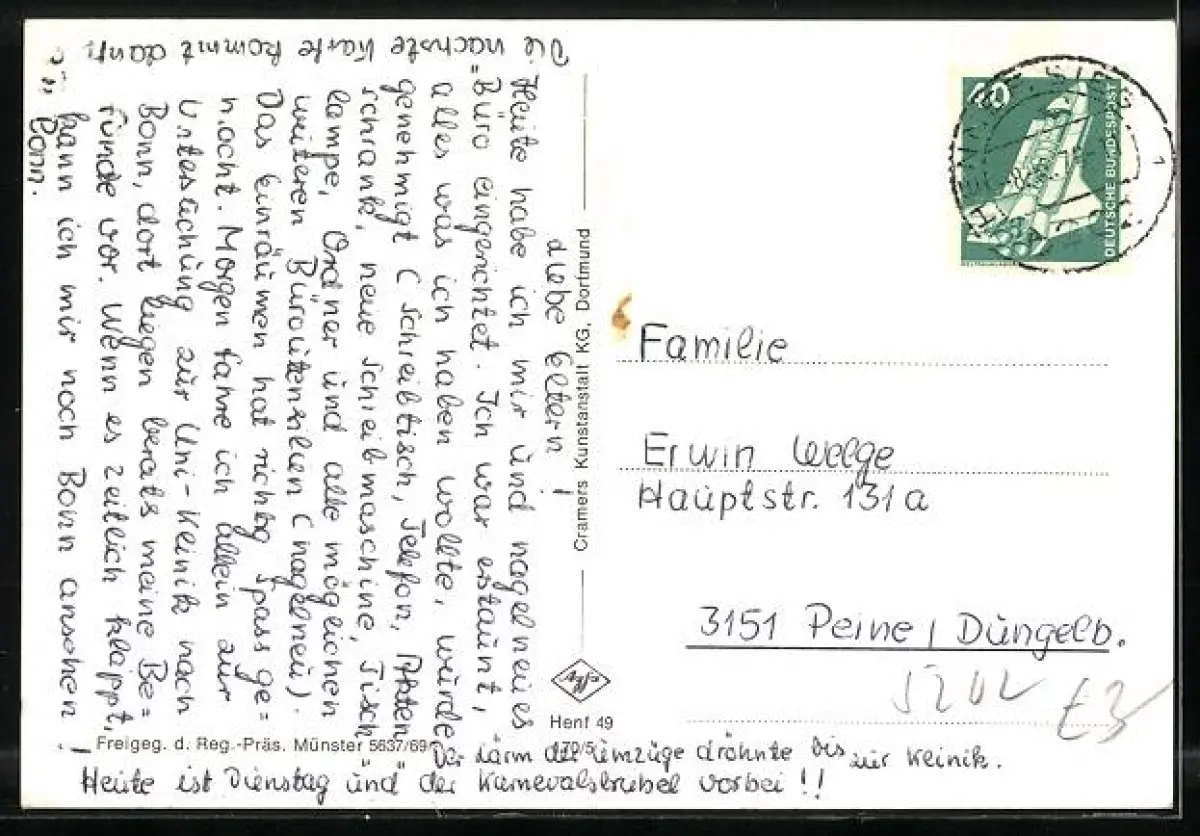 Liebe Eltern!
Heute habe ich mir und nagelneues
"Büro eingerichtet. Ich war erstaunt,
alles was ich haben wollte, würde
genehmigt (Schreibtisch, Telefon, Akten"
schrank, neue Schreibmaschine, Tisch"
lampe, Ordner und alle möglichen
weiteren Büroutensilien (nagelneu).
Das Einräumen hat richtig Spass ge=
macht. Morgen fahre ich allein zur
Untersuchung zur Uni-Klinik nach
Bonn, dort liegen bereits meine Be=
funde vor. Wenn es zeitlich klappt,
kann ich mir noch Bonn ansehen!
Die nächste Karte kommt dann
Bonn.
Der Lärm der Umzüge dröhnte bis zur Klinik.
Heute ist Dienstag und der Karnevalstrubel vorbei!!
Freigeg. d. Reg.-Präs. Münster 5637/69
Cramers Kunstanstalt KG, Dortmund
Henf 49
179/5
40
DEUTSCHE BUNDESPOST
HENNEF SIEG
1
Familie
Erwin Welge
Hauptstr. 131a
3151 Peine/Düngelb.
£3